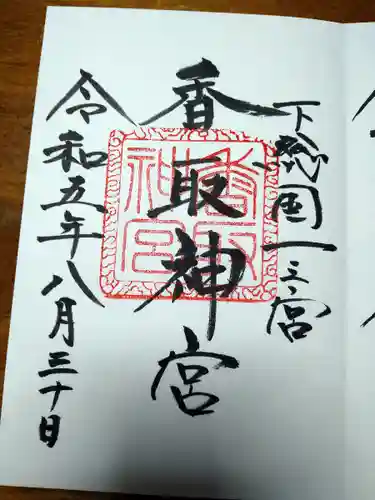 下総国一之宮
香取神宮
令和五年八月三十日
香取神宮